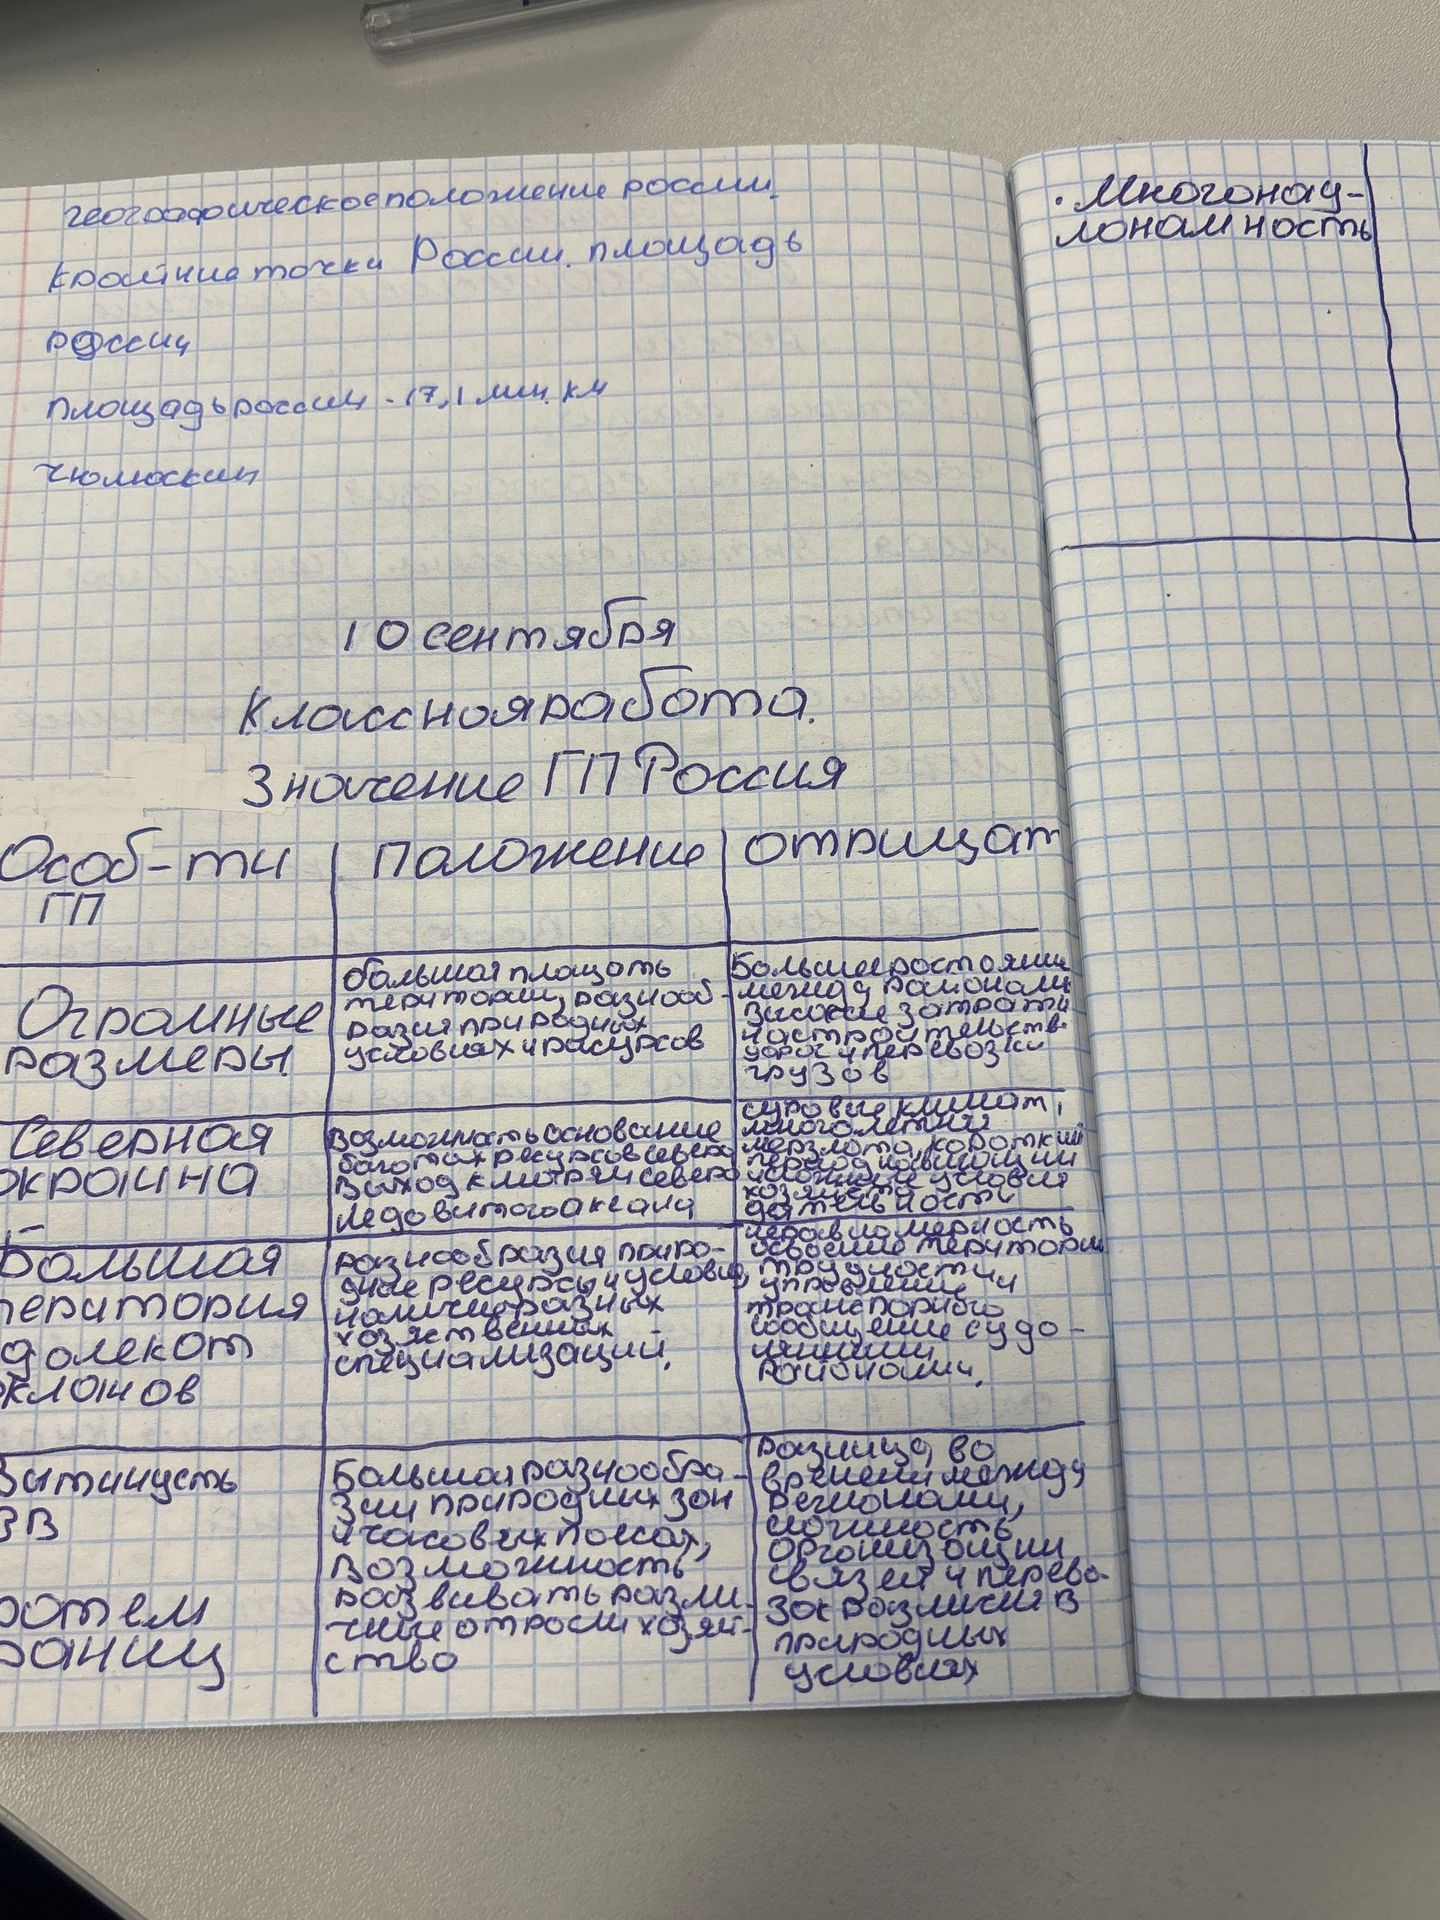 географическое положение россии.
крайние точки России. площадь
россии
площадь россии - 17,1 млн. км
Чюлюскин
10 сентября
Классная работа.
Значение ГП Россия
Особ-ти
ГП
положение
отрицат
Огромные
размеры.
большая площать
територии, разнооб-
разия природных
условиях и расурсов
Большие ростояние
между районами
высокие затраты
на строительство
дорог и перевозки
грузов
Северная
окраина
возможность основание
богатых ресурсов севера
выход к морям северо
ледовитого океана
суровые климат,
многолетния
мерзлота, короткий
период
условия
хозяйств
дятельности
Большая
територия
далекот
окланов
разнообразия приро-
дные ресурсы и условия,
наличие разных
хозяственных
специализаций.
неравномерность
освоение територии
трудности
управлении и
транспорного
сообщение с удо-
лёнными
районами.
Вытинусть
ЗВ
Большая разнообра-
зии природных зон
и часовых поясах,
возможность
развивать разли-
чные отросли хозяй-
ство
разница во
времени между
регионами,
сложность
организации
связей и перево-
зок различия в
природных
условиях
ротем
раниц
• Многонац-
иональность